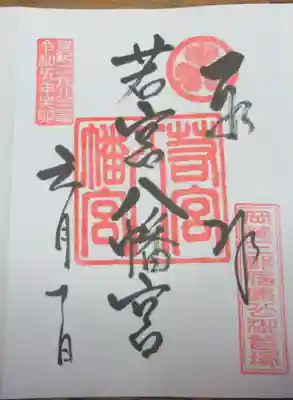 奉拝
岡崎三郎信康公御首塚
若宮八幡宮
若宮
八
幡宮
六月 日
皇紀二六八三年
令和五年癸卯